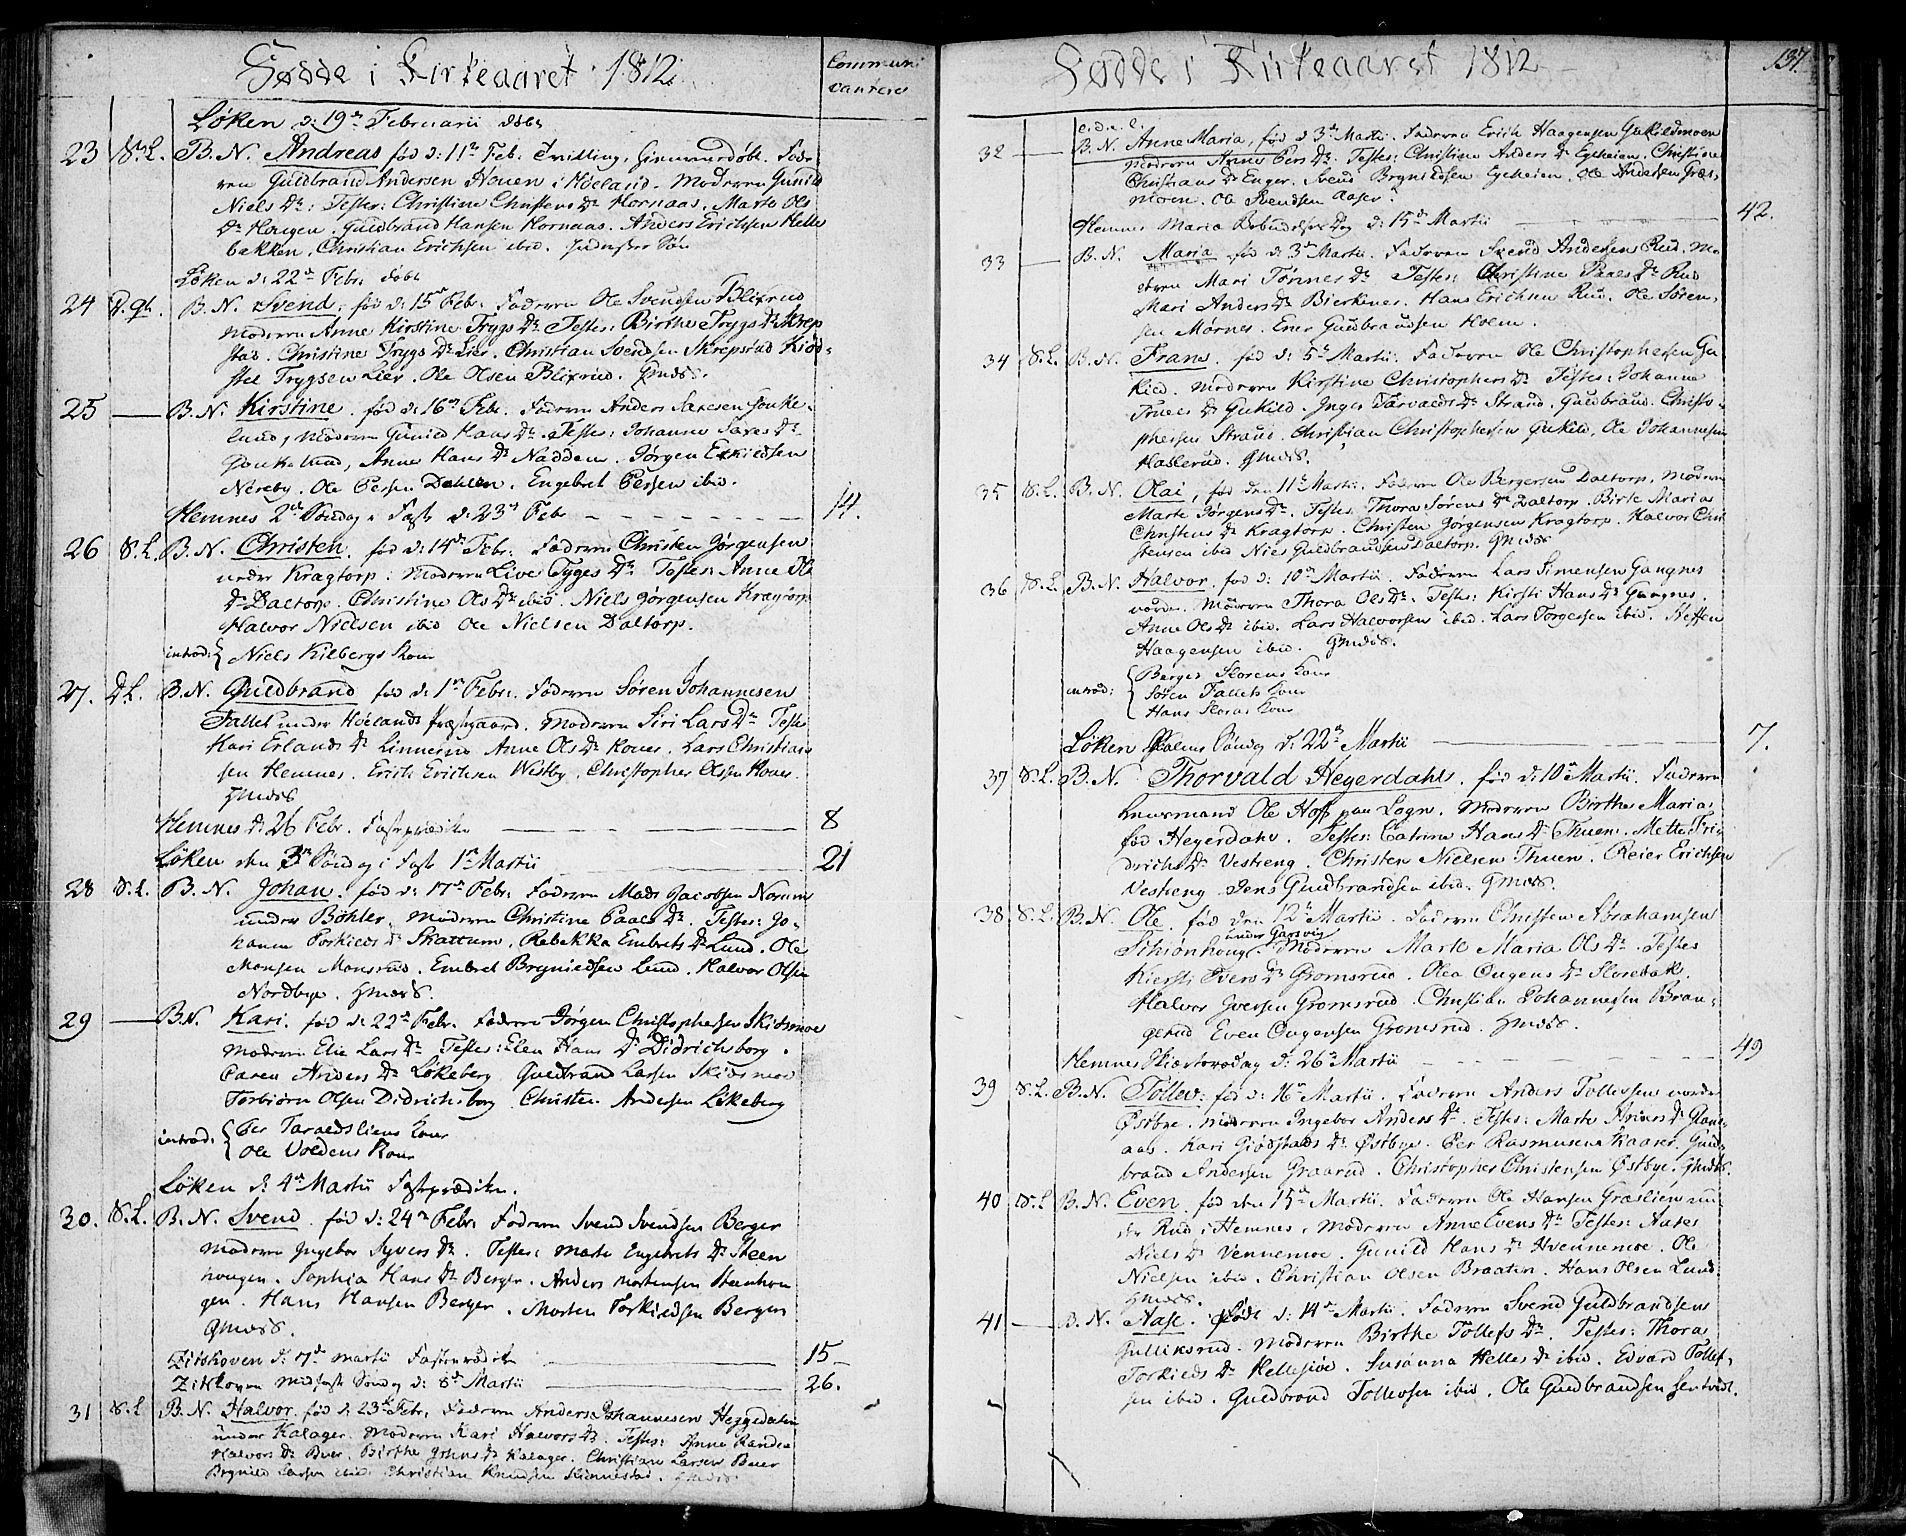 Fødde i Kirkeaaret 1812
Communi
cantere
Løken d: 19de Februarii døbt
23 S. L. B. N. Andreas fød d: 11te Feb. Tvilling, hjemmedøbt. Fade-
ren Guldbrand Andersen Houen i Høeland. Moderen Gunild
Niels Dr: Testes: Christine Christens Dr Hornaas. Marte Ols
Dr Haugen. Guldbrand Hansen Hornaas. Anders Erichsen Helle
bekken, Christian Erichsen ibid.
Løken d: 22de Febr: døbt
24 B. N. Svend, fød d: 15de Febr: Faderen Ole Svendsen Blixrud
Moderen Anne Kirstine Trygs Dr Testes: Birthe Trygs Dr Skrep
stad. Christine Trygs Dr Lier. Christian Svendsen Skrepstad Kiød-
stel Trygsen Lier. Ole Olsen Blixrud. Gmdss.
25 — B. N. Kirstine. fød d: 16de Febr. Faderen Anders Saxesen Jonke-
lund, Moderen Gunild Hans Dr. Testes: Johanne Saxes Dr
Jonkelund, Anne Hans Dr Nadden. Jørgen Eskildsen
Nereby. Ole Persen Dahlen. Engebret Persen ibid.
Hemnes 2den Søndag i Faste d: 23de Febr — 14.
26 S. L. B. N. Christen. fød d: 14de Febr: Faderen Christen Jørgensen
under Kragtorp: Moderen Live Tyges Dr Testes: Anne Ole
Dr Daltorp. Christine Ols Dr ibid. Niels Jørgensen Kragtorp
Halvor Nielsen ibid Ole Nielsen Daltorp.
introd: { Niels Kilbergs Kone
27. D L. B. N. Guldbrand fød d: 1te Febr: Faderen Søren Johannesen
Fallet under Høelands Præstgaard. Moderen Siri Lars Dr Testes
Kari Erlands Dr Linnerud Anne Ols Dr Koues. Lars Christian
sen Hemnes. Erich Erichsen Westby. Christopher Olsen Koues.
Gmdss
Hemnes d: 26 Febr. Fasteprædiken — 8
Løken den 3de Søndag i Faste 1te Martii — 21
28 S. L. B. N. Johan. fød d: 17de Febr: Faderen Mads Jacobsen Norum
under Böhler. Moderen Christine Paals Dr. Testes: Jo-
hanne Torkilds Dr Skattum. Rebekka Embrets Dr Lund. Ole
Monsen Monsrud. Embret Brynildsen Lund. Halvor Olsen
Nordbye. Gmdss.
29 — B. N. Kari. fød d: 22de Febr. Faderen Jørgen Christophersen Skidsmoe
Moderen Elie Lars Dr Testes: Elen Hans Dr Didrichsborg.
Caren Anders Dr Løkeberg Guldbrand Larsen Skidsmoe
Torbiørn Olsen Didrichsborg Christen Andersen Løkeberg
introd: { Per Taraldsliens Kone
Ole Voldens Kone
Løken d: 4de Martii Fasteprædiken.
30. S. L. B. N. Svend. fød d: 24de Febr: Faderen Svend Svendsen Berger
Moderen Ingebor Syvers Dr. Testes: Marte Engebrets Dr Steen
hougen. Sophia Hans Dr Berger. Anders Mortensen Steenhou
gen. Hans Hansen Berger. Morten Torkildsen Berger
Gmdss.
Zitskoven d: 7de Martii Fasteprædiken — 15
Zitskoven Midfaste Søndag d: 8de Martii — 26.
31 S. L B. N. Halvor. fød d: 23de Febr. Faderen Anders Johannesen Heggedalen
under Kalager. Moderen Kari Halvors Dr. Testes: Anne Randea
Halvors Dr Buer. Birthe Johns Dr Kalager. Christian Larsen Buer
Brynild Larsen ibid Christian Knudsen Kinnestad. Gmdss.
Fødde i Kirkeaaret 1812
137.
32 — B. N. Anne Maria, fød d 3de Martii. Faderen Erich Haagensen Gukildmoen
Moderen Anne Pers Dr. Testes: Christine Anders Dr Egeheien. Christine
Christians Dr Enger. Svend Brynildsen Egeheien. Ole Andersen Græs-
moen. Ole Svendsen Aaser.
Hemnes Maria Bebudelses Dag d: 15de Martii — 42.
33 — B. N. Maria fød d: 3de Martii. Faderen Svend Andersen Rud. Mo-
deren Mari Tønnes Dr Testes: Christine Paals Dr Rud
Mari Anders Dr Bierkenes. Hans Erichsen Rud. Ole Søren-
sen Mørnes. Ener Guldbrandsen Holm.
34 S. L. B. N. Frans. fød d: 5te Martii. Faderen Ole Christophersen Gu
kild. Moderen Kirstine Christophers Dr Testes: Johanne
Truels Dr Gukild. Inger Tarvalds Dr Strand. Guldbrand Christo-
phersen Strand. Christian Christophersen Gukild, Ole Johannesen
Haslerud. Gmdss.
35 S. L. B. N. Olai, fød den 11te Martii. Faderen Ole Bergersen Daltorp. Moderen
Marte Jørgens Dr. Testes. Thora Sørens Dr Daltorp. Birte Maria
Christens Dr Kragtorp. Christen Jørgensen Kragtorp. Halvor Chri
stensen ibid Niels Guldbrandsen Daltorp. Gmdss
36 S. L. B. N. Halvor. fød d: 10de Martii. Faderen Lars Simensen Gangnes
vordre. Moderen Thora Ols Dr. Testes: Kirsti Hans Dr Gangnes.
Anne Ols Dr ibid. Lars Halvorsen ibid. Lars Torgersen ibid. Steffen
Haagensen ibid. Gmdss.
introd: { Berger Slorens Kone
Søren Fallets Kone
Hans Sloras Kone
Løken Palme Søndag d: 22de Martii — 7.
37 S. L. B. N. Thorvald Heyerdahl. fød d: 10de Martii. Faderen
Ole Hoff paa Logn. Moderen Birthe Maria
fød Heyerdahl. Testes: Catrine Hans Dr Thuen. Mette Fri-
drichs Dr Vestreng. Christen Nielsen Thuen. Reier Erichsen
Vestreng Jens Guldbrandsen ibid. Gmdss.
38. S. L. B. N. Ole. fød den 12te Martii. Faderen Christen Abrahamsen
Skiønhoug under Garsvig. Moderen Marte Maria Ols Dr. Testes
Kiersti Ivers Dr Gromsrud. Olea Ougens Dr Slorebak.
Halvor Iversen Gromsrud. Christian Johannesen Bran-
gerud Even Ougensen Gromsrud. Gmdss.
Hemnes Skiærtorsdag d: 26de Martii — 49
39 S. L. B. N. Tollev: fød d: 16de Martii. Faderen Anders Tollevsen vordre
Østbye. Moderen Ingebor Anders Dr. Testes: Marte Arnes Dr
aas. Kari Giødstads Dr Østbye. Per Rasmusen Kaaser. Guld-
brand Andersen Graarud. Christopher Christensen Østbye. Gmdss.
40 S. L B. N. Even. fød den 15de Martii. Faderen Ole Hansen Graslien un-
der Rud i Hemnes. Moderen Anne Evens Dr Testes: Aases
Niels Dr Vennemoe. Gunild Hans Dr Hvennemoe. Ole
Nielsen ibid. Christian Olsen Braaten. Hans Olsen Lund
Gmdss.
41 — B. N. Aase. fød d: 14de Martii. Faderen Svend Guldbrandsen
Gulliksrud. Moderen Birthe Tollefs Dr. Testes: Thora
Torkilds Dr Hellesiøe. Susanna Helles Dr ibid. Edvard Tollef-
sen ibid. Guldbrand Tollevsen ibid. Ole Guldbrandsen